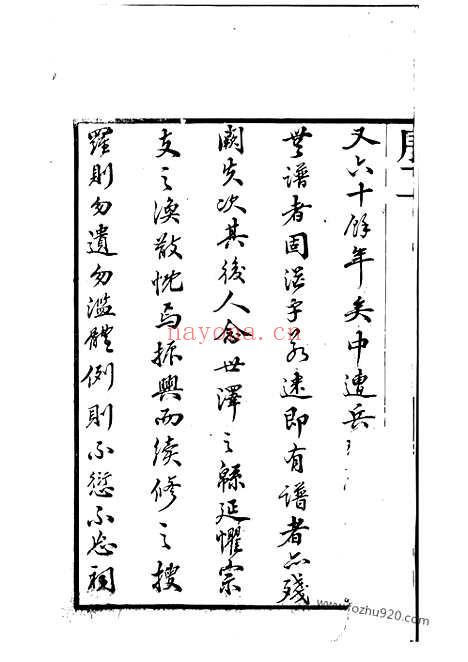 序二
又六十餘年矣中遭兵
無譜者固茫乎若迷即有譜者亦殘
闕失次其後人念世澤之緜延懼宗
支之渙散忱焉振興而續修之搜
羅則勿遺勿濫體例則不愆不忘祠
nayona.cn
www.fozhu920.com